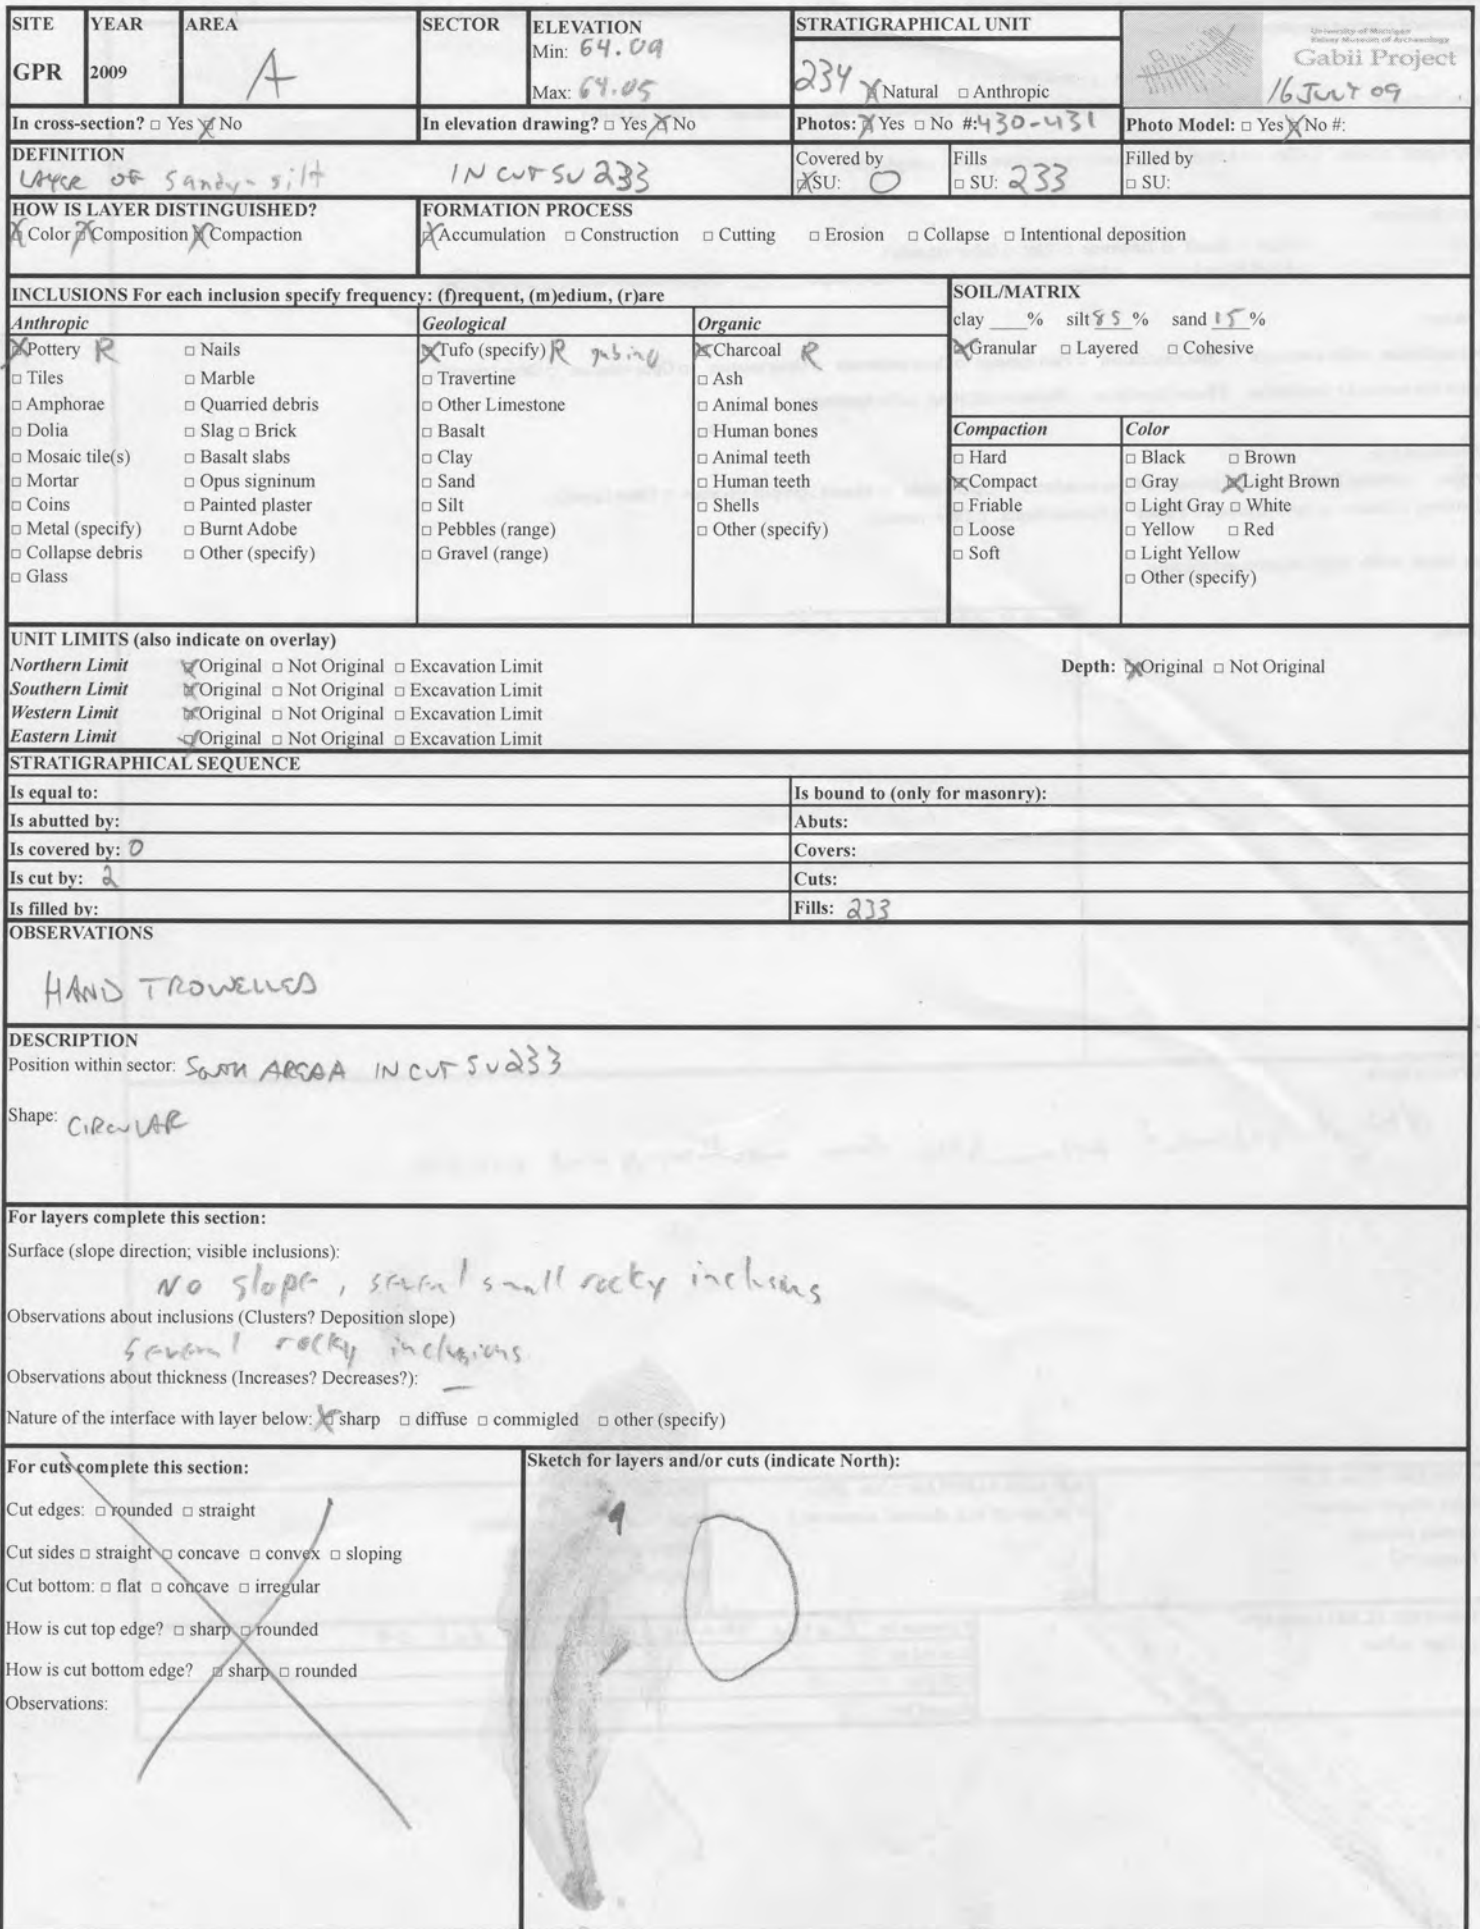 SITE YEAR AREA SECTOR ELEVATION STRATIGRAPHICAL UNIT
University of Michigan
Kelsey Museum of Archaeology
Gabii Project
GPR 2009 A
Min: 64.09
Max: 64.05
234 ☒ Natural □ Anthropic
16 JULY 09
In cross-section? □ Yes ☒ No In elevation drawing? □ Yes ☒ No Photos: ☒ Yes □ No #: 430-431 Photo Model: □ Yes ☒ No #:
DEFINITION
LAYER OF sandy-silt IN CUT SU 233
Covered by
☒ SU: 0
Fills
□ SU: 233
Filled by
□ SU:
HOW IS LAYER DISTINGUISHED?
☒ Color ☒ Composition ☒ Compaction
FORMATION PROCESS
☒ Accumulation □ Construction □ Cutting □ Erosion □ Collapse □ Intentional deposition
INCLUSIONS For each inclusion specify frequency: (f)requent, (m)edium, (r)are
Anthropic
☒ Pottery R
□ Tiles
□ Amphorae
□ Dolia
□ Mosaic tile(s)
□ Mortar
□ Coins
□ Metal (specify)
□ Collapse debris
□ Glass
□ Nails
□ Marble
□ Quarried debris
□ Slag □ Brick
□ Basalt slabs
□ Opus signinum
□ Painted plaster
□ Burnt Adobe
□ Other (specify)
Geological
☒ Tufo (specify) R
□ Travertine
□ Other Limestone
□ Basalt
□ Clay
□ Sand
□ Silt
□ Pebbles (range)
□ Gravel (range)
Organic
☒ Charcoal R
□ Ash
□ Animal bones
□ Human bones
□ Animal teeth
□ Human teeth
□ Shells
□ Other (specify)
SOIL/MATRIX
clay ___% silt 85 % sand 15 %
☒ Granular □ Layered □ Cohesive
Compaction
□ Hard
☒ Compact
□ Friable
□ Loose
□ Soft
Color
□ Black □ Brown
□ Gray ☒ Light Brown
□ Light Gray □ White
□ Yellow □ Red
□ Light Yellow
□ Other (specify)
UNIT LIMITS (also indicate on overlay)
Northern Limit ☒ Original □ Not Original □ Excavation Limit Depth: ☒ Original □ Not Original
Southern Limit ☒ Original □ Not Original □ Excavation Limit
Western Limit ☒ Original □ Not Original □ Excavation Limit
Eastern Limit ☒ Original □ Not Original □ Excavation Limit
STRATIGRAPHICAL SEQUENCE
Is equal to: Is bound to (only for masonry):
Is abutted by: Abuts:
Is covered by: 0 Covers:
Is cut by: 2 Cuts:
Is filled by: Fills: 233
OBSERVATIONS
HAND TROWELLED
DESCRIPTION
Position within sector: SOUTH AREA A IN CUT SU 233
Shape: CIRCULAR
For layers complete this section:
Surface (slope direction; visible inclusions):
NO slope, several small rocky inclusions
Observations about inclusions (Clusters? Deposition slope)
several rocky inclusions
Observations about thickness (Increases? Decreases?): —
Nature of the interface with layer below: ☒ sharp □ diffuse □ commigled □ other (specify)
For cuts complete this section:
Cut edges: □ rounded □ straight
Cut sides □ straight □ concave □ convex □ sloping
Cut bottom: □ flat □ concave □ irregular
How is cut top edge? □ sharp □ rounded
How is cut bottom edge? □ sharp □ rounded
Observations:
Sketch for layers and/or cuts (indicate North):